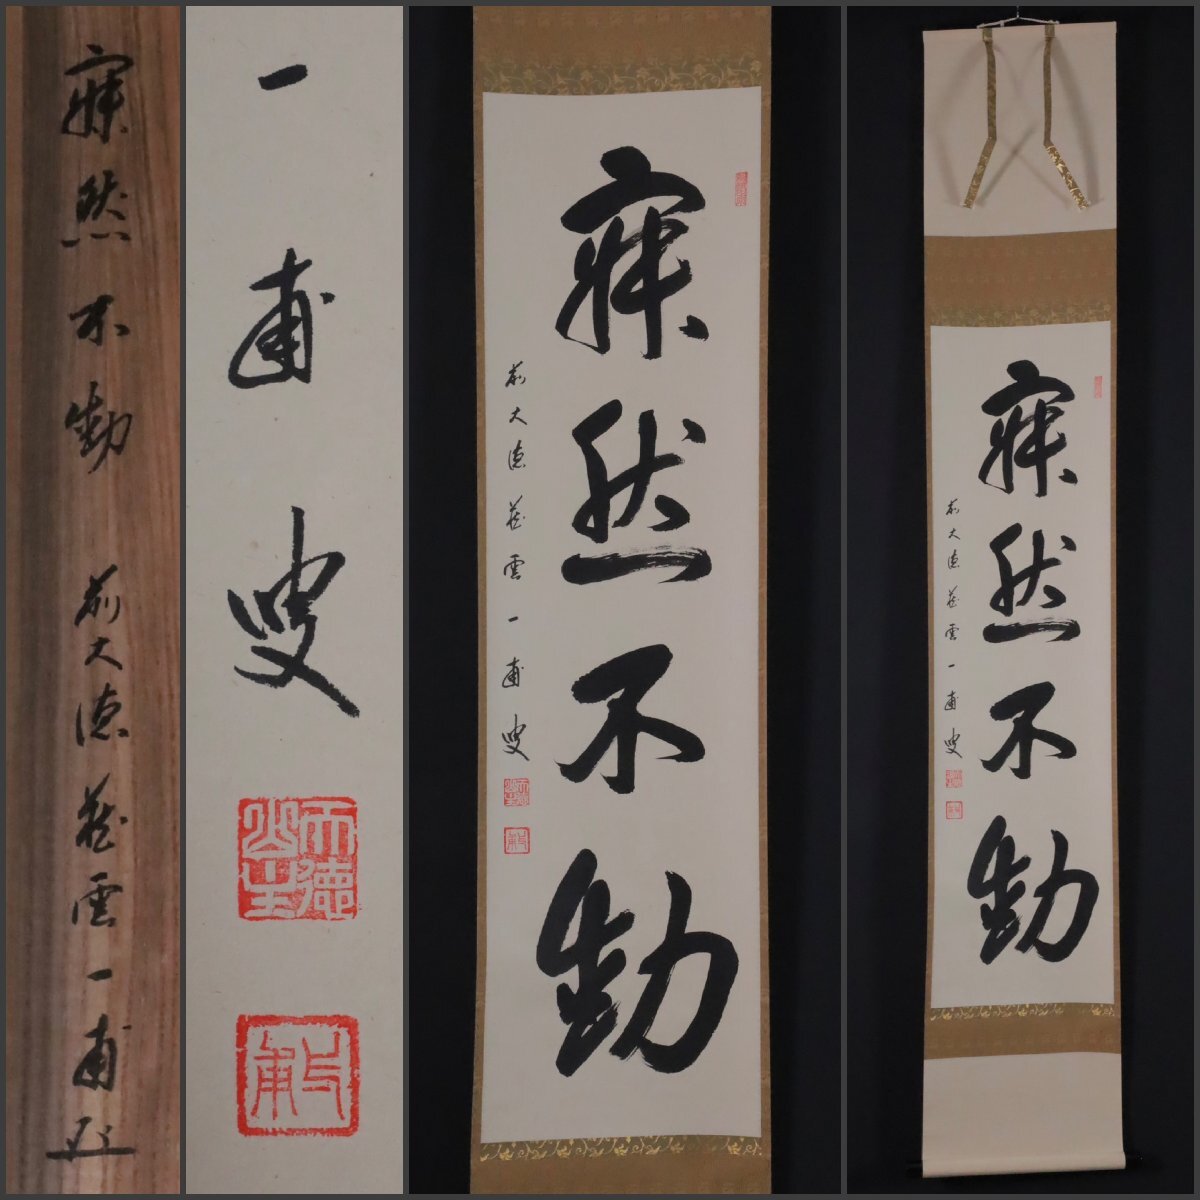 寂然不動 前大徳藏雲一甫
一甫叟
寂然不動
前大徳藏雲一甫叟
寂然不動
前大徳藏雲一甫叟